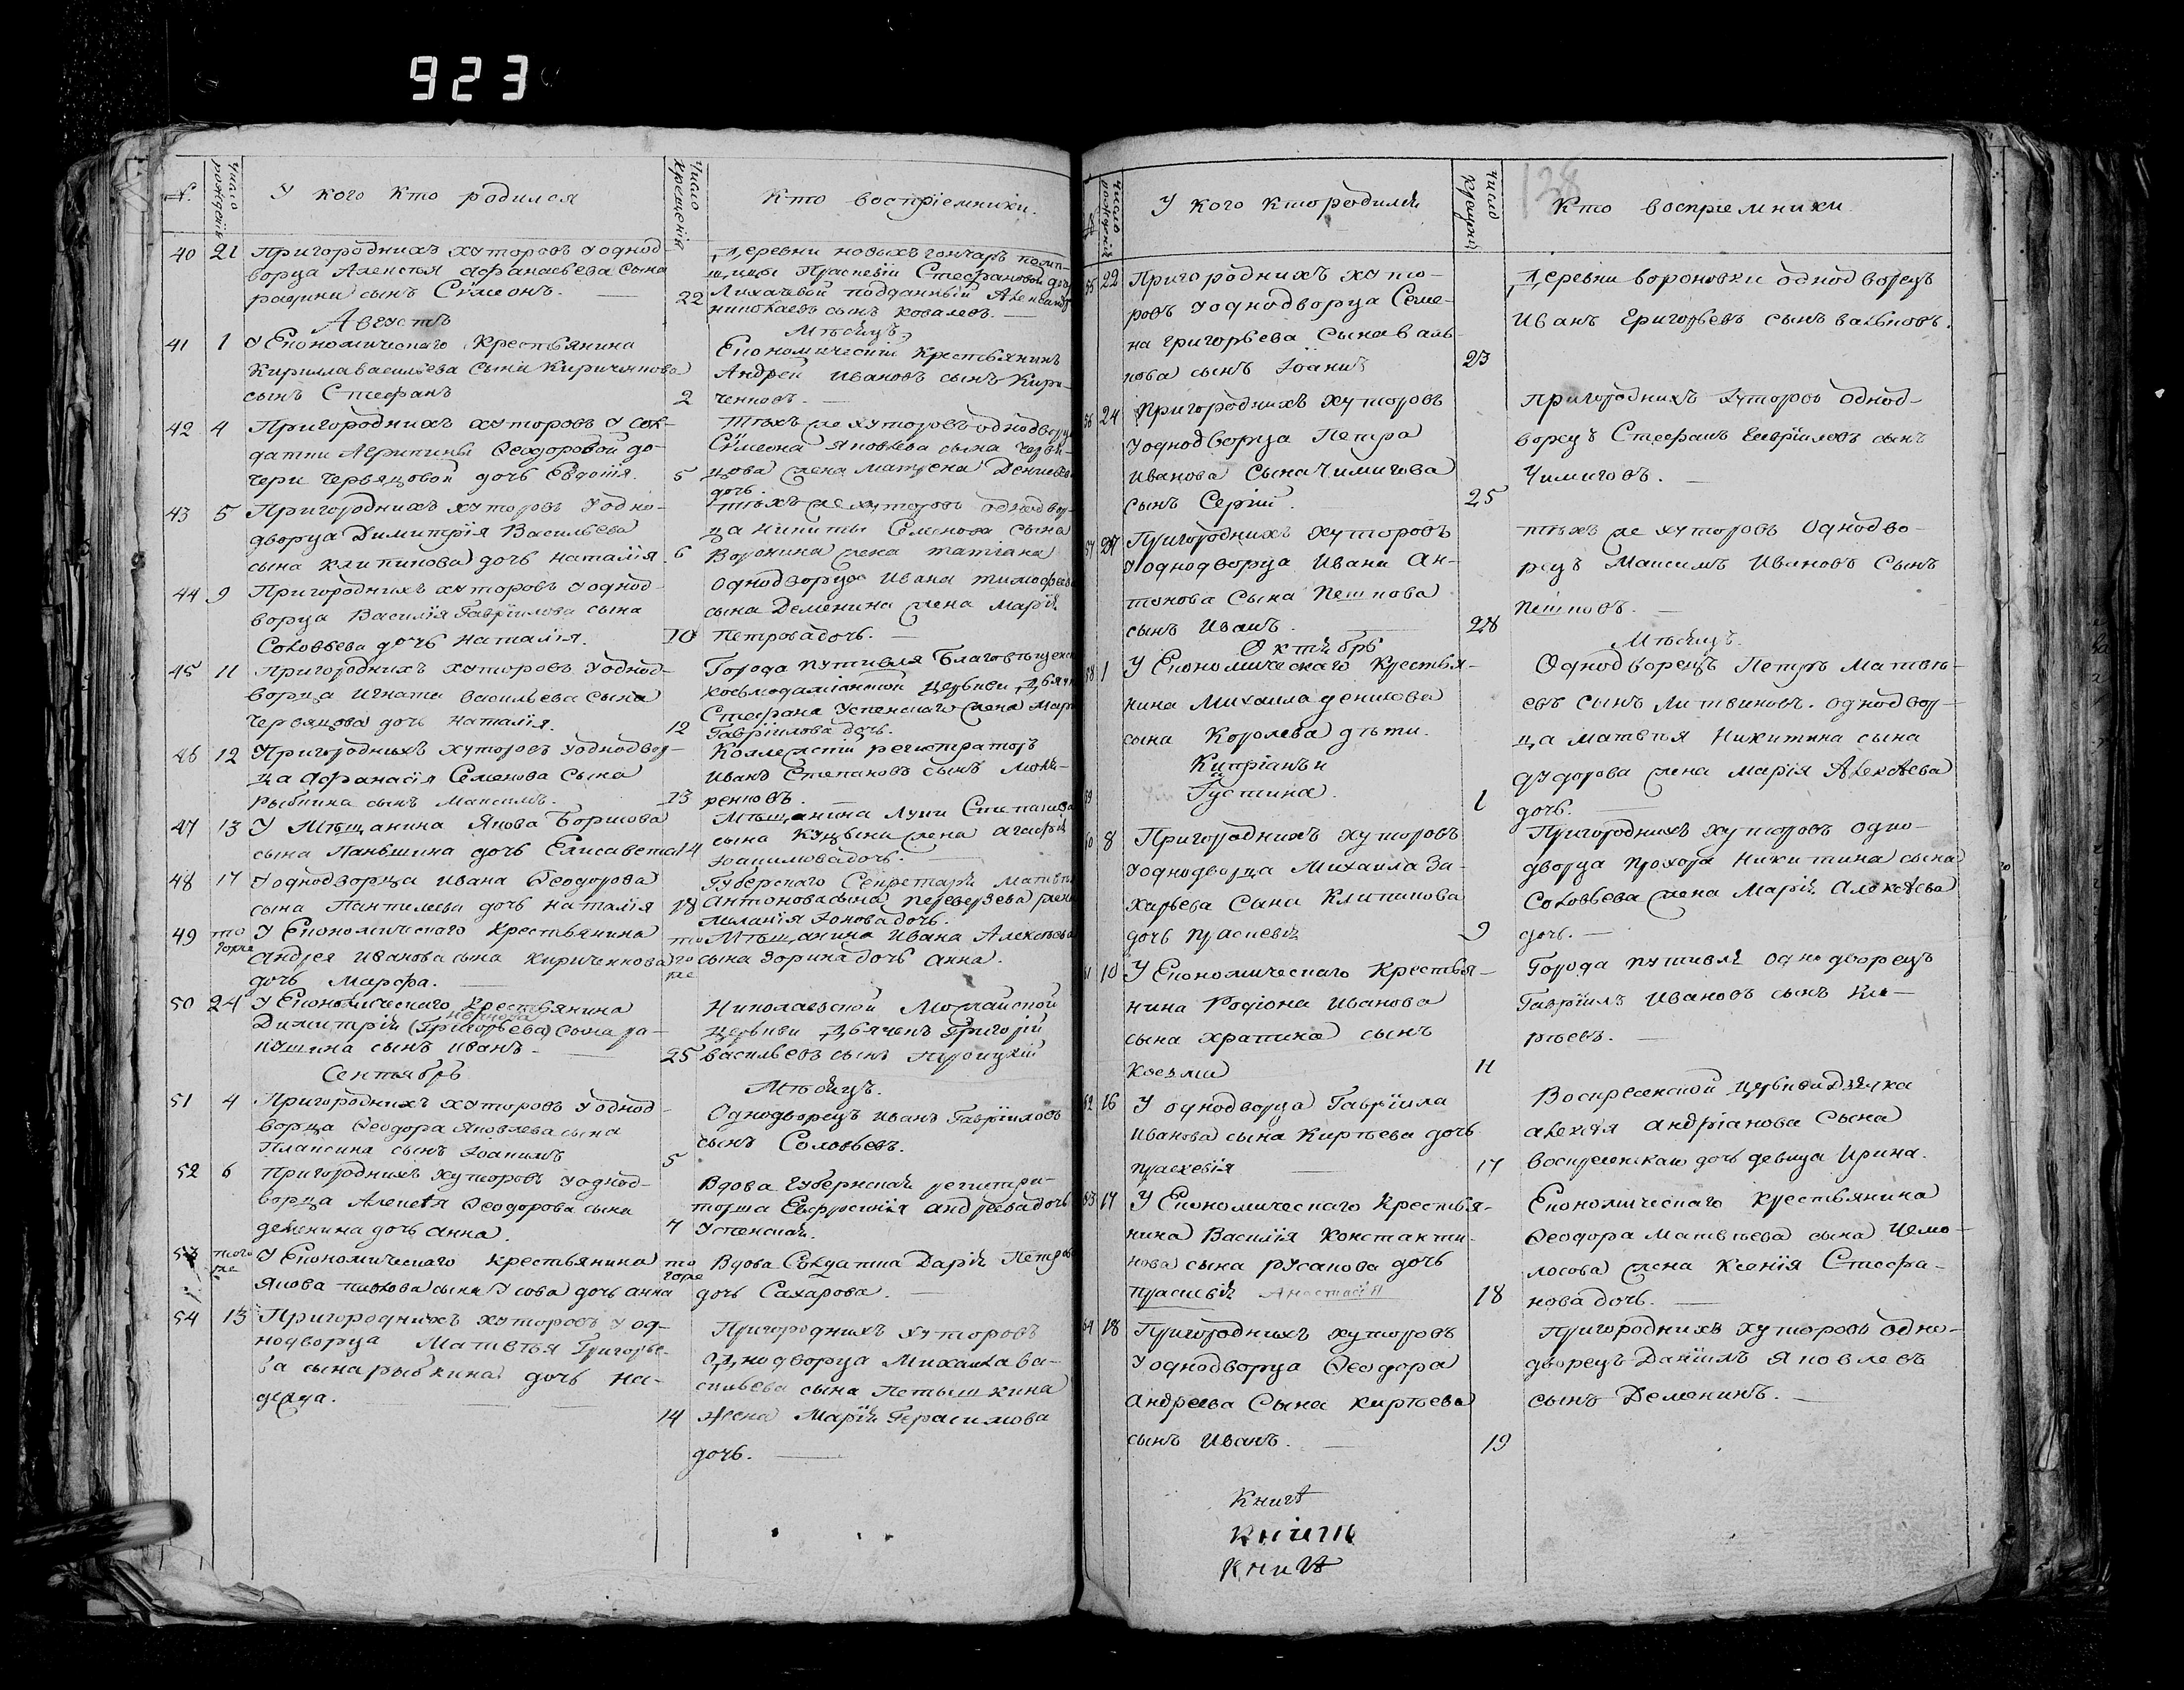 923
№.
Число рожденія
У кого кто родился
Число крещенія
Кто воспріемники.
40 21 Пригородних хуторовъ у однод-
ворца Алексѣя Афанасьева сына
сынъ Сѵмеонъ.
22
Деревни новыхъ гончаръ
Праскевіи Стефановой
Лихачевой подданный
николаевъ сынъ Ковалевъ.
Августъ
Мѣсяцъ
41 1 У Економическаго Крестьянина
Кирилла васильева сына Кириченкова
сынъ Стефанъ
2
Економическій Крестьянинъ
Андрей Ивановъ сынъ Кири-
ченковъ.
42 4 Пригороднихъ хуторовъ у сол-
датки Агрипины Ѳеодоровой до-
чери Червяцовой дочь Евдокія.
5
тѣхъ же хуторовъ однодворца
Сѵмеона Яковлева сына Червя-
цова жена Матрена
дочь.
43 5 Пригороднихъ хуторовъ у одно-
дворца Димитрія Васильева
сына Клитинова дочь наталія.
6
тѣхъ же хуторовъ однодвор-
ца Никиты Семенова сына
Воронина жена татіана
44 9 Пригороднихъ хуторовъ у однод-
ворца Василія Гавріилова сына
Соловьева дочь Наталія.
10
Однодворца Ивана тимофеева
сына Деменина жена Марія
Петрова дочь.
45 11 Пригороднихъ хуторовъ у однод-
ворца Игната васильева сына
Червяцова дочь Наталія.
12
Города путивля Благовѣщенск
церкви
Стефана Успенскаго жена
Гавріилова дочь.
46 12 Пригороднихъ хуторовъ у однодвор-
ца Афанасія Семенова Сына
рыбкина сынъ Максимъ.
13
Коллежскій регистраторъ
Иванъ Степановъ сынъ
47 13 У Мѣщанина Якова
сына Паньшина дочь Елисавета
14
Мѣщанина Луки
сына жена Агафія
Іоакимова дочь.
48 17 У однодворца Ивана Ѳеодорова
сына Пантелеева дочь наталія
18
Губерскаго Секретаря
Антонова сына Переверзева жена
Меланія дочь.
49 того же У Економическаго Крестьянина
Андрея Иванова сына Кириченкова
дочь Марфа.
того же
Мѣщанина Ивана Алексѣева
сына Зорина дочь Анна.
50 24 У Економическаго Крестьянина
Димитрія (Григорьева) сына ра-
кушина сынъ Иванъ.
25
Николаевской Можайской
церкви Дьячекъ Григорій
васильевъ сынъ
Сентябрь
Мѣсяцъ.
51 4 Пригороднихъ хуторовъ у однод-
ворца Ѳеодора Яковлева сына
Плаксина сынъ Іоакимъ
5
Однодворецъ Иванъ Гавріиловъ
сынъ Соловьевъ.
52 6 Пригороднихъ хуторовъ у однод-
ворца Алексѣя Ѳеодорова сына
деменина дочь Анна.
7
Вдова Губернская регистра-
торша Евфросинія Андреева дочь
Успенская.
53 того же У Економическаго Крестьянина
Якова сына Усова дочь Анна
того же
Вдова Солдатка Дарія Петрова
дочь Сахарова.
54 13 Пригороднихъ хуторовъ у од-
нодворца Матвѣя Григорье-
ва сына рыбкина дочь На-
дежда.
14
Пригороднихъ хуторовъ
Однодворца Михаила ва-
сильева сына Петышкина
жена Марія Герасимова
дочь.
138
№
Число рожденія
У кого кто родился
Число крещенія
Кто воспріемники
55 22 Пригороднихъ хуто-
ровъ у однодворца Семе-
на Григорьева Сына валь-
кова сынъ Іоаннъ
23
Деревни вороновки однодворецъ
Иванъ Григорьевъ сынъ вальковъ.
56 24 Пригороднихъ хуторовъ
у однодворца Петра
Иванова Сына Чимигова
сынъ Сергій.
25
Пригороднихъ хуторовъ однод-
ворецъ Стефанъ Гавріиловъ сынъ
Чимиговъ.
57 27 Пригороднихъ хуторовъ
У однодворца Ивана Ан-
тонова Сына Пешкова
сынъ Иванъ.
28
тѣхъ же хуторовъ Однодво-
рецъ Максимъ Ивановъ Сынъ
Пешковъ.
Октябрь
Мѣсяцъ.
58 1 У Економическаго Крестья-
нина Михаила денисова
сына Королева дѣти.
Кипріанъ и
59 Іустина.
1
Однодворецъ Петръ Матвѣ-
евъ сынъ Литвиновъ. однодвор-
ца Матвѣя Никитина сына
дудорова жена Марія Алексѣева
дочь.
60 8 Пригороднихъ хуторовъ
У однодворца Михаила За-
харьева Сына Клитинова
дочь Праскевія
9
Пригороднихъ хуторовъ одно-
дворца Прохора Никитина сына
Соловьева жена Марія Алексѣева
дочь.
61 10 У Економическаго Крестья-
нина Родіона Иванова
сына Храпина сынъ
Козма
11
Города путивля однодворецъ
Гавріилъ Ивановъ сынъ Ки-
рѣевъ.
62 16 У однодворца Гавріила
Иванова сына Кирѣева дочь
Праскевія
17
Воскресенской церкви Дьячка
Алексѣя Андріанова Сына
Воскресенскаго дочь девица Ирина.
63 17 У Економическаго Крестья-
нина Василія Константи-
нова сына Русанова дочь
Праскевія Анастасія
18
Економическаго Крестьянина
Ѳеодора Матвѣева сына Чемо-
лосова жена Ксенія Стефа-
нова дочь.
64 18 Пригороднихъ хуторовъ
У однодворца Ѳеодора
Андреева Сына Кирѣева
сынъ Иванъ.
19
Пригороднихъ хуторовъ одно-
дворецъ Даніилъ Яковлевъ
сынъ Деменинъ.
Книгѣ
Книги
Книгѣ